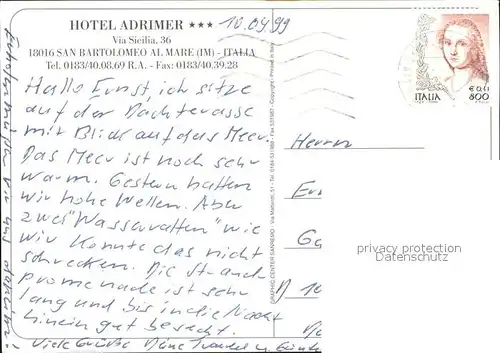 HOTEL ADRIMER ★★★
Via Sicilia, 36
18016 SAN BARTOLOMEO AL MARE (IM) - ITALIA
Tel. 0183/40.08.69 R.A. - Fax: 0183/40.39.28
10.09.99
Hallo Ernst, ich sitze
auf der Dachterasse
mit Blick auf das Meer.
Das Meer ist noch sehr
warm. Gestern hatten
wir hohe Wellen. Aber
zwei "Wasserratten" wie
wir konnte das nicht
schrecken. Die Strand
promenade ist sehr
lang und bis in die Nacht
hinein gut besucht.
Viele Grüße Deine
ITALIA
€ 0,41
800
Herrn
D
privacy protection
Datenschutz
GRAPHIC CENTER SANREMO - Via Matteotti, 51 - Tel.